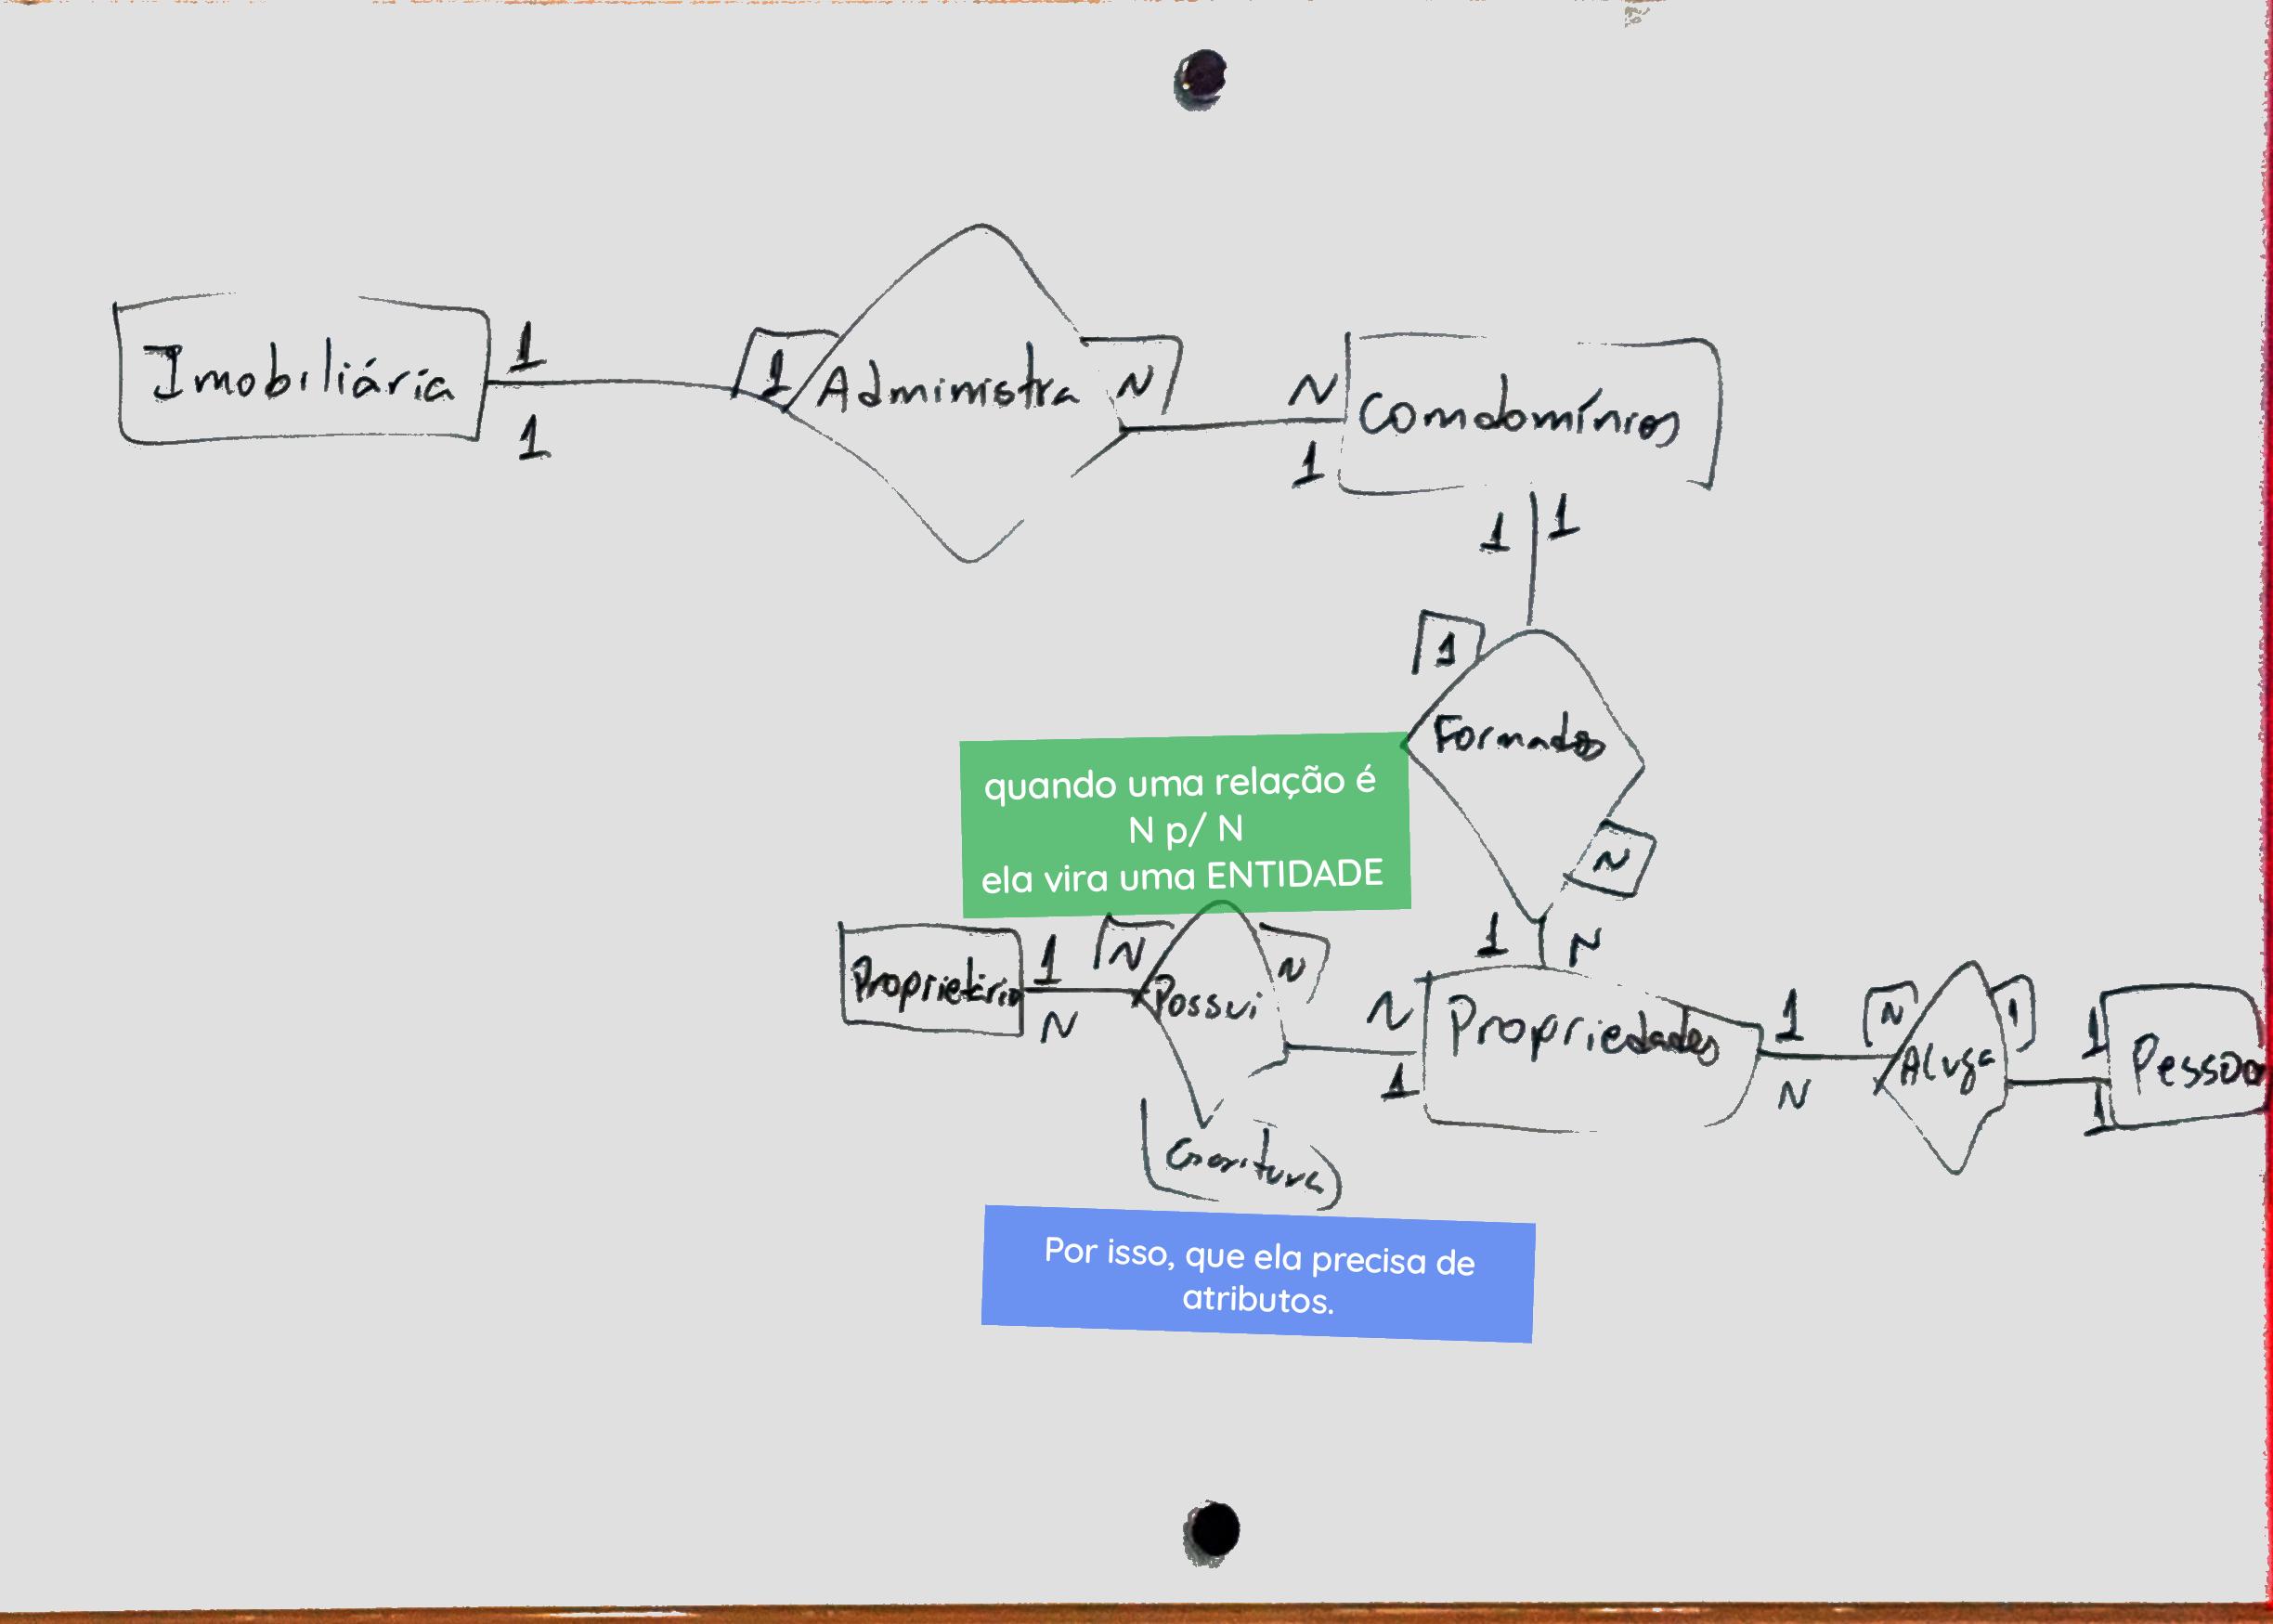 1
Imobiliária
1
1
Administra
N
N
Comdomínios
1
1
1
1
Formados
N
quando uma relação é
N p/ N
ela vira uma ENTIDADE
1 N
Proprietário
1
N
N
Possui
N
N
1
Propriedades
1
N
N
Aluga
1
1
1
Pessoa
Escritura
Por isso, que ela precisa de
atributos.